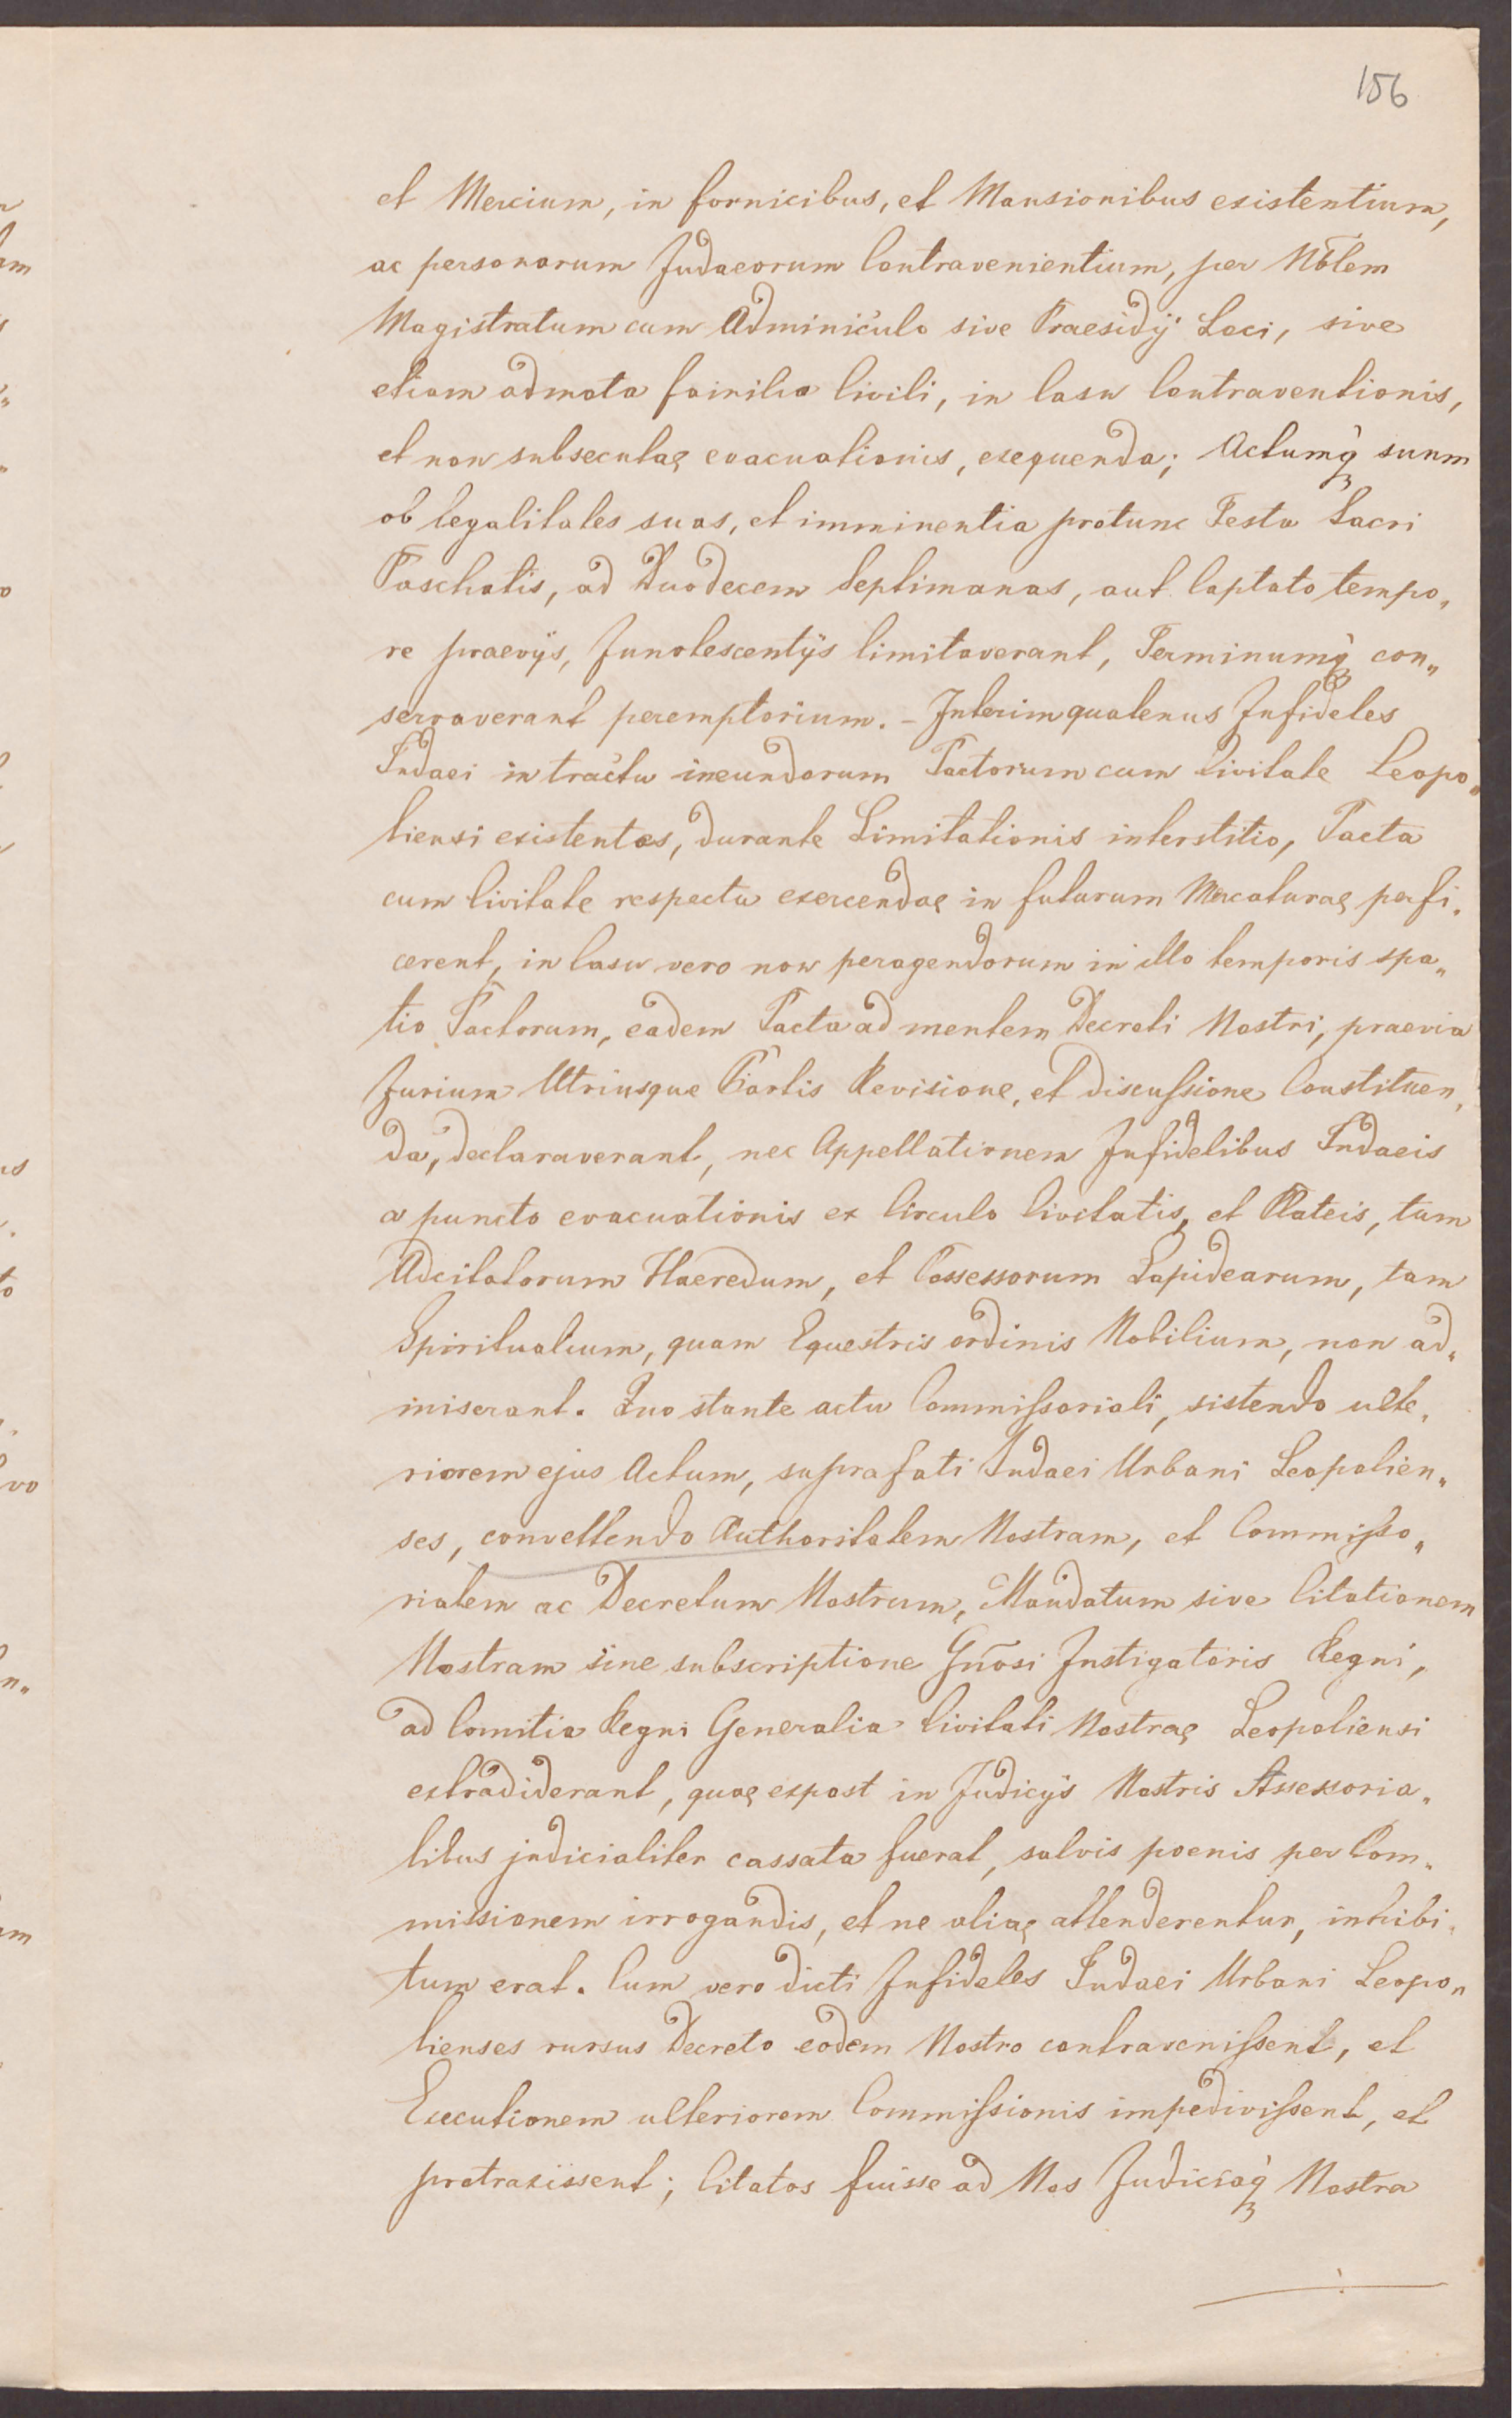 156
et Mercium, in fornicibus, et Mansionibus existentium,
ac personarum Judaeorum Contravenientium, per Nōblem
Magistratum cum Adminiculo sive Praesidÿ Loci, sive
etiam admota familia Civili, in Casu Contraventionis,
et non subsecutae evacuationis, exequenda; Actumq̀ suum
ob legalitates suas, et imminentia protunc Festa Sacri
Paschatis, ad Duodecem Septimanas, aut Captato tempo„
re praevÿs, Innotescentÿs limitaverant, Terminumq̀ con„
servaverant peremptorium. – Interim quatenus Infideles
Judaei in tractu ineundorum Pactorum cum Civitate Leopo„
liensi existentes, durante Limitationis interstitio, Pacta
cum Civitate respectu exercendae in futurum Mercaturae perfi„
cerent, in Casu vero non peragendorum in illo temporis spa„
tio Pactorum, eadem Pacta ad mentem Decreti Nostri, praevia
Jurium Utriusque Partis Revisione, et discussione Constituen„
da, declaraverant, nec Appellationem Infidelibus Judaeis
a puncto evacuationis ex Circulo Civitatis, et Plateis, tum
Adcitatorum Haeredum, et Possessorum Lapidearum, tam
Spiritualium, quam Equestris ordinis Nobilium, non ad„
miserant. Quo stante actu Commissoriali, sistendo ulte„
riorem ejus Actum, suprafati Judaei Urbani Leopolien„
ses, convellendo Authoritatem Nostram, et Commisso„
rialem ac Decretum Nostrum, Mandatum sive Citationem
Nostram sine subscriptione Gn̄osi Instigatoris Regni,
ad Comitia Regni Generalia Civitati Nostrae Leopoliensi
extradiderant, quae expost in Judicÿs Nostris Assessoria„
libus judicialiter cassata fuerat, salvis poenis per Com„
missionem irrogandis, et ne aliae attenderentur, inhibi„
tum erat. Cum vero dicti Infideles Judaei Urbani Leopo„
lienses rursus Decreto eodem Nostro contravenissent, et
Executionem ulteriorem Commissionis impedivissent, et
protraxissent; Citatos fuisse ad Nos Judiciaq̀ Nostra